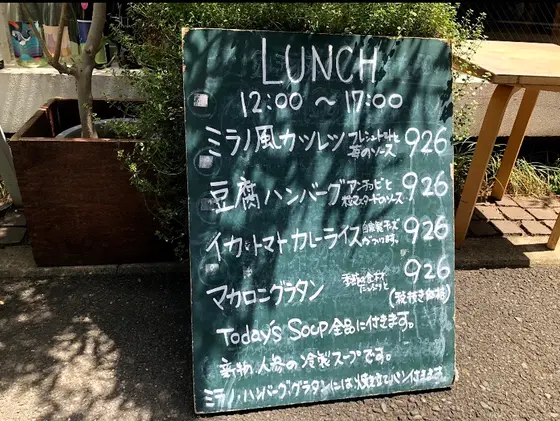 LUNCH
12:00 ～ 17:00
ミラノ風カツレツ フレッシュトマトと 苺のソース 926
豆腐ハンバーグ アンチョビと 粒マスタードのソース 926
イカ・トマトカレーライス 自家製チーズ がつきます。 926
マカロニグラタン 季節の食材で たっぷりと 926
(税抜き価格)
Today's Soup 全品に付きます。
新物 人参の冷製スープです。
ミラノ、ハンバーグ、グラタンには焼立てパン付きます